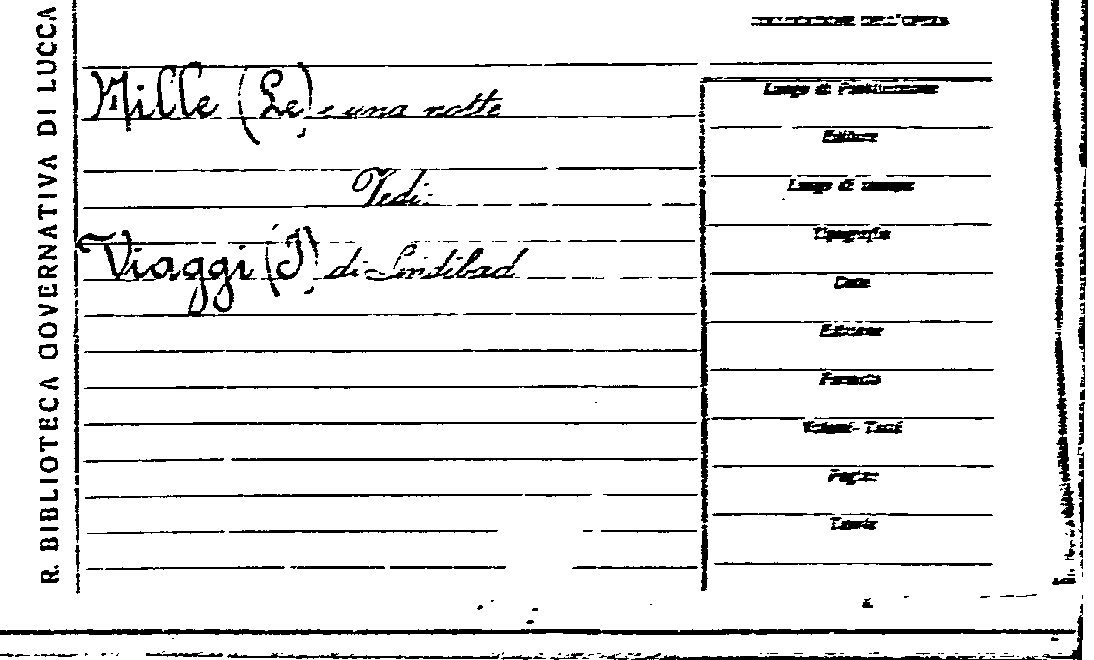 R. BIBLIOTECA GOVERNATIVA DI LUCCA
Mille (Le) e una notte
Vedi:
Viaggi (I) di Sindibad
Luogo di Pubblicazione
Editore
Luogo di stampa
Tipografia
Data
Edizione
Formato
Volumi - Tomi
Pagine
Tavole